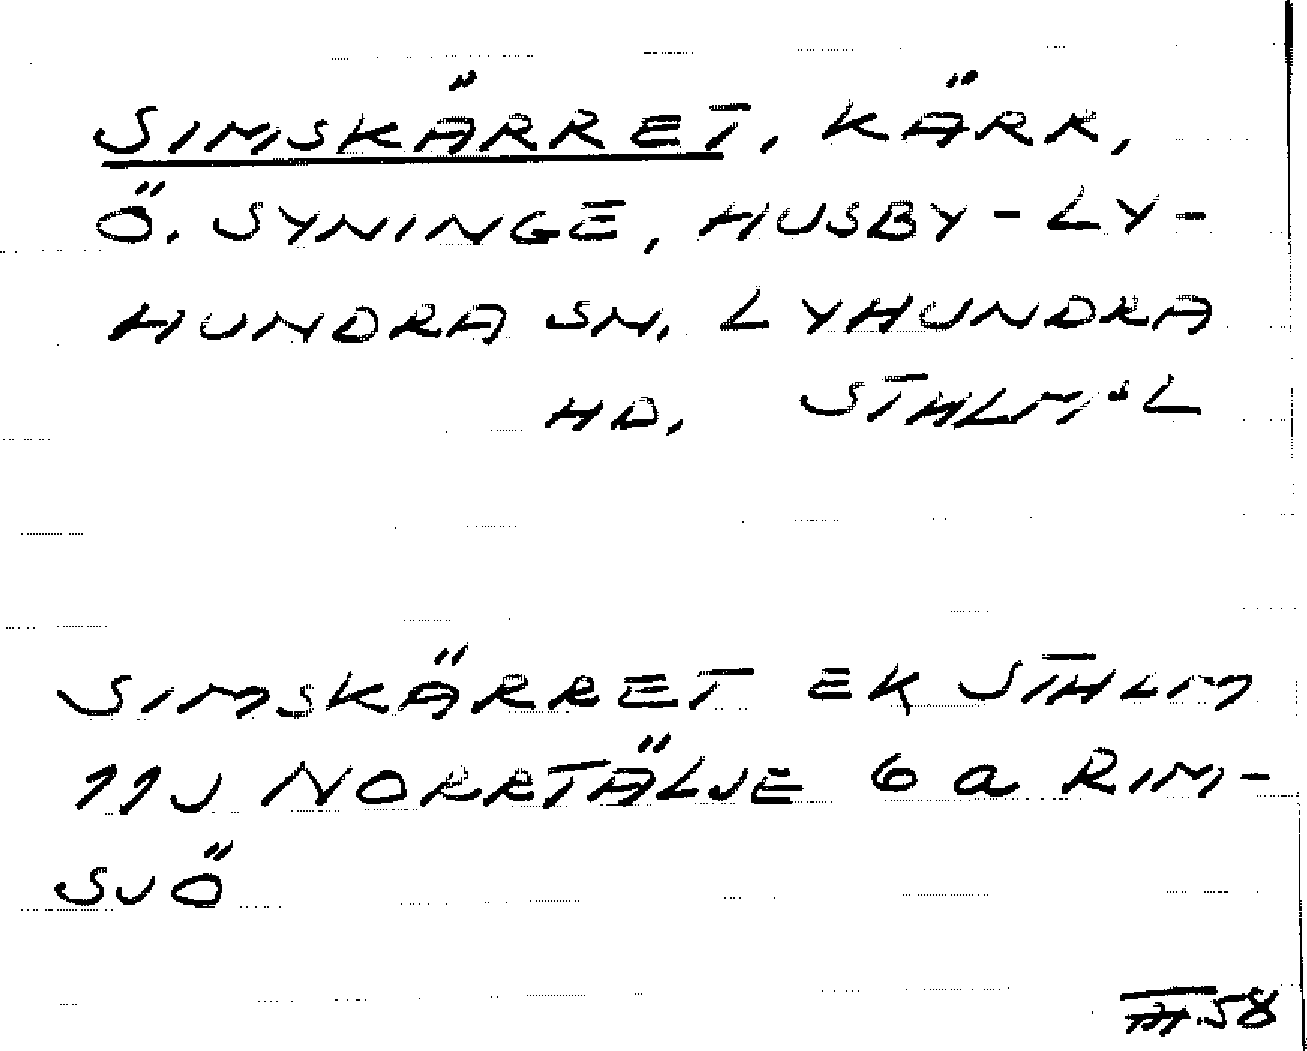 SIMSKÄRRET, KÄRR,
Ö. SYNINGE, HUSBY-LY-
HUNDRA SN. LYHUNDRA
HD. STHLMS L
SIMSKÄRRET EK STHLM
11J NORRTÄLJE 6 a RIM-
SJÖ
58